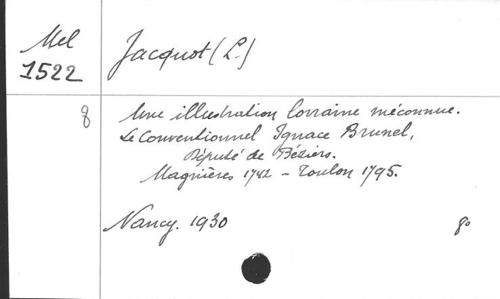 Mel
1522
Jacquot (L.)
8
Une illustration lorraine méconnue.
Le Conventionnel Ignace Brunel,
Député de Béziers.
Magnières 1742 - Toulon 1795.
Nancy. 1930
8o